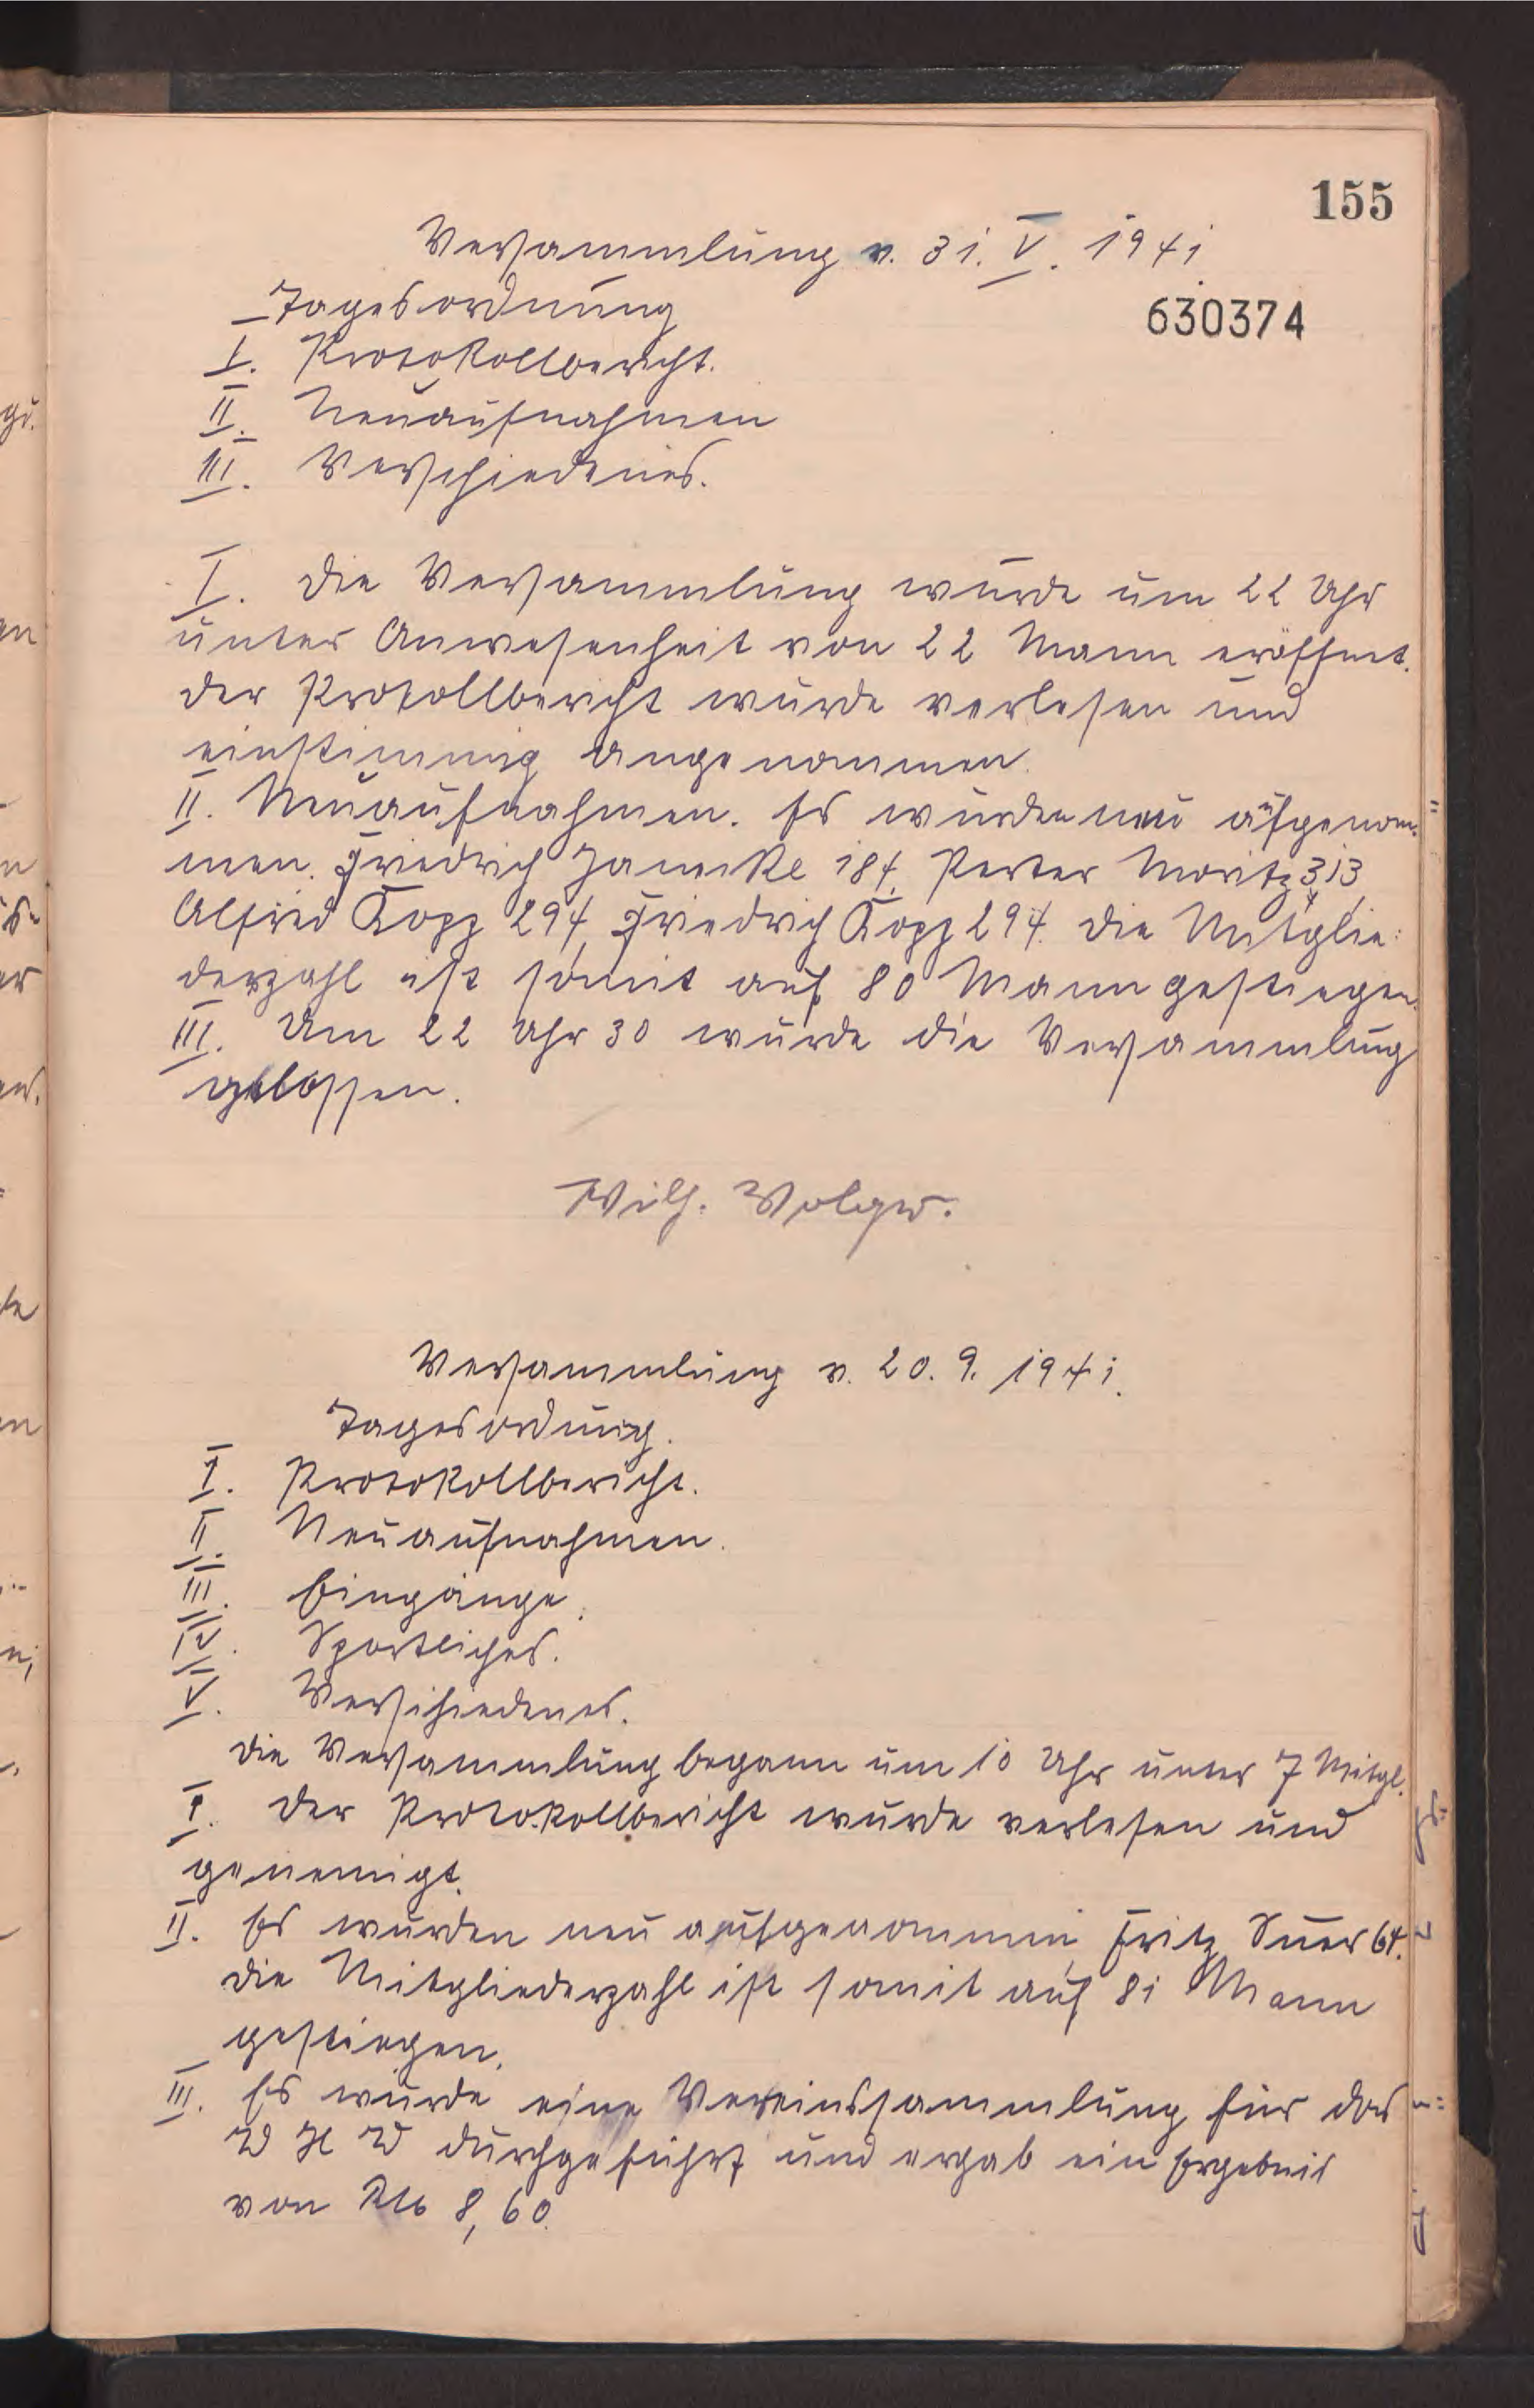 155
Versammlung v. 31. V. 1941
630374
Tagesordnung
I. Protokollbericht.
II. Neuaufnahmen
III. Verschiedenes.
I. Die Versammlung wurde um 22 Uhr
unter Anwesenheit von 22 Mann eröffnet.
Der Protollbericht wurde verlesen und
einstimmig angenommen.
II. Neuaufnahmen. Es wurden neu aufgenom-
men. Friedrich 184, Moritz 313,
Alfred Kopp 294, Friedrich Kopp 294. Die Mitglie-
derzahl ist somit auf 80 Mann gestiegen.
III. Um 22 Uhr 30 wurde die Versammlung
Wilh.
Versammlung v. 20. 9. 1941.
Tagesordnung.
I. Protokollbericht.
II. Neuaufnahmen.
III. Eingänge.
IV. Sportliches.
V. Verschiedenes.
Die Versammlung begann um 10 Uhr unter 7 Mitgl.
I. Der Protokollbericht wurde verlesen und
II. Es wurden neu aufgenommen, Fritz 64.
Die Mitgliederzahl ist somit auf 81 Mann
gestiegen.
III. Es wurde eine Vereinssammlung für das
W H W durchgeführt und ergab ein Ergebnis
von RM 8,60.